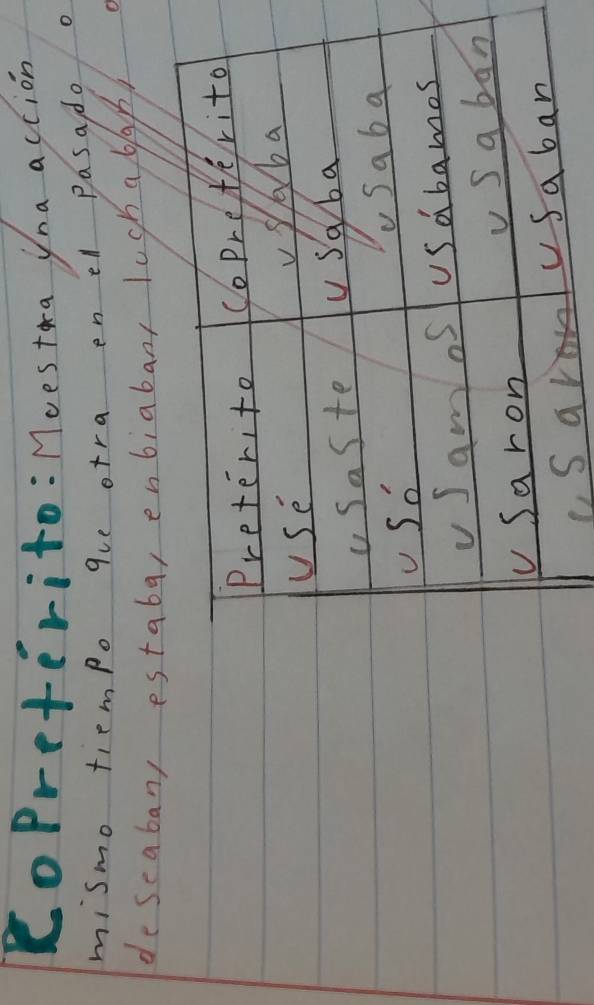 Copretérito: Muestra una acción
mismo tiempo que otra en el pasado o
deseaban, estaba, enbiaban, luchaban,
Pretérito Copretérito
usé usaba
usaste usaba
usó usaba
usamos usábamos
usaron usaban
usaron usaban